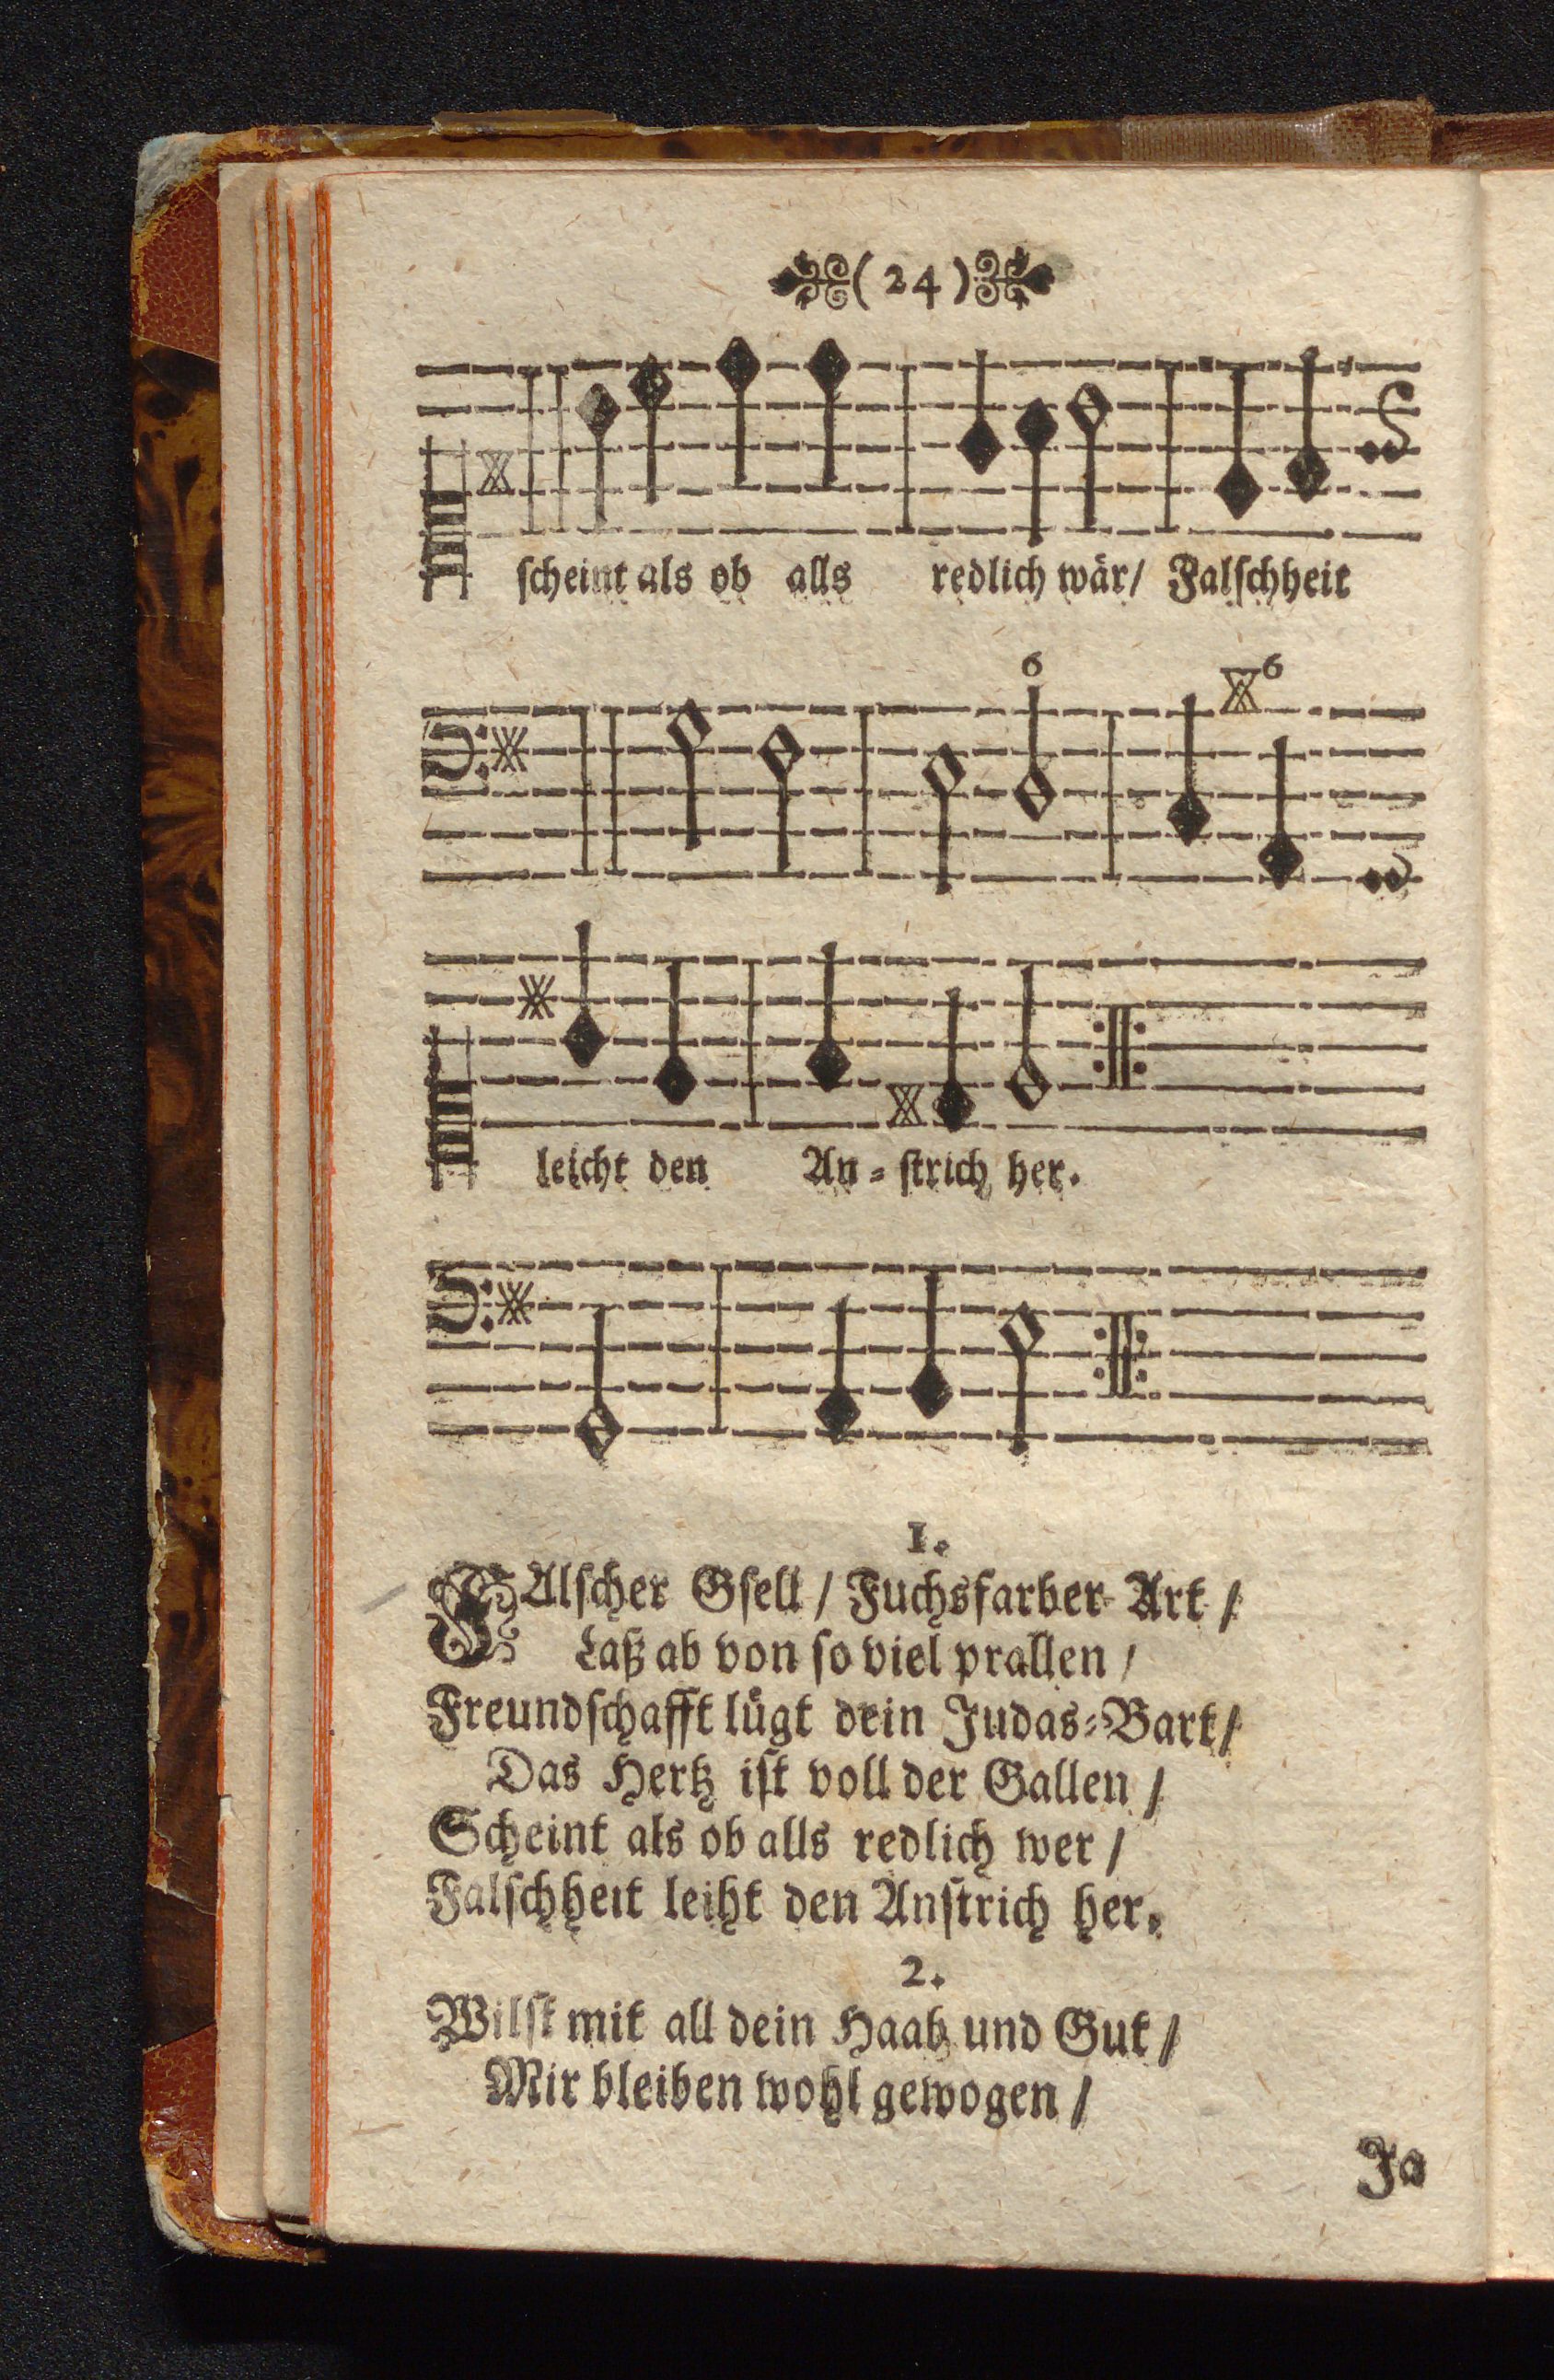 ( 24 )
scheint als ob alls redlich wär/ Falschheit
6
6
leicht den An = strich her.
1.
FAlscher Gsell / Fuchsfarber Art /
Laß ab von so viel prallen /
Freundschafft lügt dein Judas=Bart /
Das Hertz ist voll der Gallen /
Scheint als ob alls redlich wer /
Falschheit leiht den Anstrich her.
2.
Wilst mit all dein Haab und Gut /
Mir bleiben wohl gewogen /
Ja